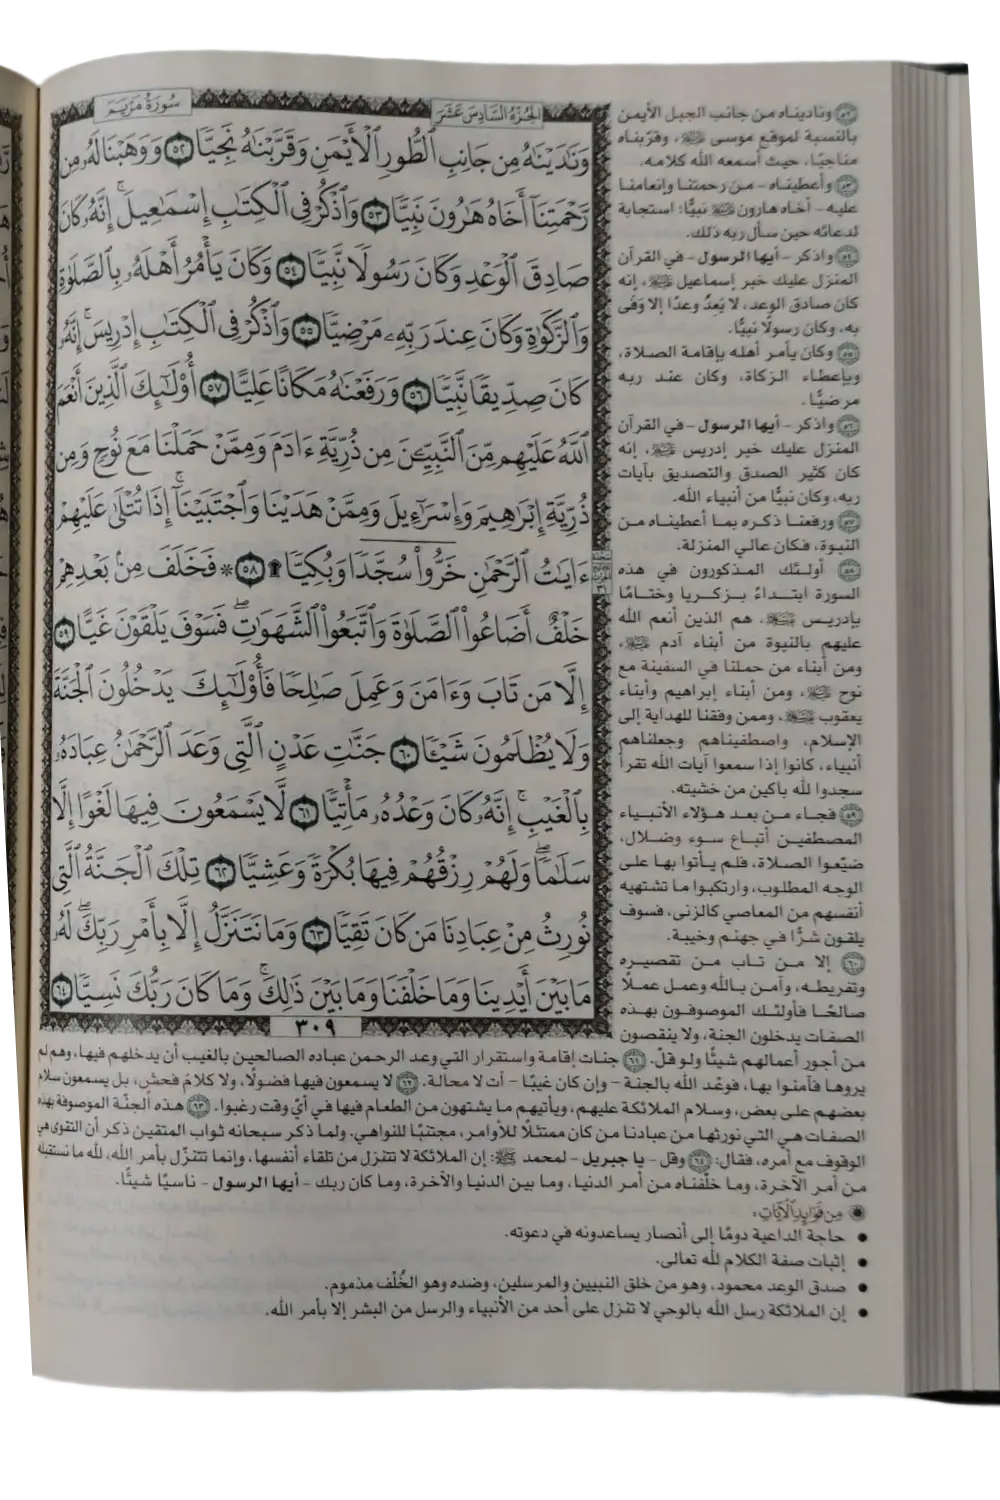 سُورَةُ مَرْيَمَ
الجُزْءُ السَّادِسَ عَشَرَ
وَنَٰدَيْنَٰهُ مِن جَانِبِ ٱلطُّورِ ٱلْأَيْمَنِ وَقَرَّبْنَٰهُ نَجِيًّا ٥٢ وَوَهَبْنَا لَهُۥ مِن
رَّحْمَتِنَآ أَخَاهُ هَٰرُونَ نَبِيًّا ٥٣ وَٱذْكُرْ فِى ٱلْكِتَٰبِ إِسْمَٰعِيلَ ۚ إِنَّهُۥ كَانَ
صَادِقَ ٱلْوَعْدِ وَكَانَ رَسُولًا نَّبِيًّا ٥٤ وَكَانَ يَأْمُرُ أَهْلَهُۥ بِٱلصَّلَوٰةِ
وَٱلزَّكَوٰةِ وَكَانَ عِندَ رَبِّهِۦ مَرْضِيًّا ٥٥ وَٱذْكُرْ فِى ٱلْكِتَٰبِ إِدْرِيسَ ۚ إِنَّهُۥ
كَانَ صِدِّيقًا نَّبِيًّا ٥٦ وَرَفَعْنَٰهُ مَكَانًا عَلِيًّا ٥٧ أُو۟لَٰٓئِكَ ٱلَّذِينَ أَنْعَمَ
ٱللَّهُ عَلَيْهِم مِّنَ ٱلنَّبِيِّـۧنَ مِن ذُرِّيَّةِ ءَادَمَ وَمِمَّنْ حَمَلْنَا مَعَ نُوحٍ وَمِن
ذُرِّيَّةِ إِبْرَٰهِيمَ وَإِسْرَٰٓءِيلَ وَمِمَّنْ هَدَيْنَا وَٱجْتَبَيْنَآ ۚ إِذَا تُتْلَىٰ عَلَيْهِمْ
ءَايَٰتُ ٱلرَّحْمَٰنِ خَرُّوا۟ سُجَّدًا وَبُكِيًّا ۩ ٥٨ * فَخَلَفَ مِنۢ بَعْدِهِمْ
خَلْفٌ أَضَاعُوا۟ ٱلصَّلَوٰةَ وَٱتَّبَعُوا۟ ٱلشَّهَوَٰتِ ۖ فَسَوْفَ يَلْقَوْنَ غَيًّا ٥٩
إِلَّا مَن تَابَ وَءَامَنَ وَعَمِلَ صَٰلِحًا فَأُو۟لَٰٓئِكَ يَدْخُلُونَ ٱلْجَنَّةَ
وَلَا يُظْلَمُونَ شَيْـًٔا ٦٠ جَنَّٰتِ عَدْنٍ ٱلَّتِى وَعَدَ ٱلرَّحْمَٰنُ عِبَادَهُۥ
بِٱلْغَيْبِ ۚ إِنَّهُۥ كَانَ وَعْدُهُۥ مَأْتِيًّا ٦١ لَّا يَسْمَعُونَ فِيهَا لَغْوًا إِلَّا
سَلَٰمًا ۖ وَلَهُمْ رِزْقُهُمْ فِيهَا بُكْرَةً وَعَشِيًّا ٦٢ تِلْكَ ٱلْجَنَّةُ ٱلَّتِى
نُورِثُ مِنْ عِبَادِنَا مَن كَانَ تَقِيًّا ٦٣ وَمَا نَتَنَزَّلُ إِلَّا بِأَمْرِ رَبِّكَ ۖ لَهُۥ
مَا بَيْنَ أَيْدِينَا وَمَا خَلْفَنَا وَمَا بَيْنَ ذَٰلِكَ ۚ وَمَا كَانَ رَبُّكَ نَسِيًّا ٦٤
٣٠٩
٥٢ وناديناه من جانب الجبل الأيمن
بالنسبة لموقع موسى ﷺ، وقرّبناه
مناجيًا، حيث أسمعه الله كلامه.
٥٣ وأعطيناه - من رحمتنا وإنعامنا
عليه - أخاه هارون ﷺ نبيًّا؛ استجابة
لدعائه حين سأل ربه ذلك.
٥٤ واذكر - أيها الرسول - في القرآن
المنزل عليك خبر إسماعيل ﷺ، إنه
كان صادق الوعد، لا يَعِدُ وعدًا إلا وَفَى
به، وكان رسولًا نبيًّا.
٥٥ وكان يأمر أهله بإقامة الصلاة،
وبإعطاء الزكاة، وكان عند ربه
مرضيًّا.
٥٦ واذكر - أيها الرسول - في القرآن
المنزل عليك خبر إدريس ﷺ، إنه
كان كثير الصدق والتصديق بآيات
ربه، وكان نبيًّا من أنبياء الله.
٥٧ ورفعنا ذكره بما أعطيناه من
النبوة، فكان عالي المنزلة.
٥٨ أولئك المذكورون في هذه
السورة ابتداءً بزكريا وختامًا
بإدريس ﷺ، هم الذين أنعم الله
عليهم بالنبوة من أبناء آدم ﷺ،
ومن أبناء من حملنا في السفينة مع
نوح ﷺ، ومن أبناء إبراهيم وأبناء
يعقوب ﷺ، وممن وفقنا للهداية إلى
الإسلام، واصطفيناهم وجعلناهم
أنبياء، كانوا إذا سمعوا آيات الله تقرأ
سجدوا لله باكين من خشيته.
٥٩ فجاء من بعد هؤلاء الأنبياء
المصطفين أتباع سوء وضلال،
ضيّعوا الصلاة، فلم يأتوا بها على
الوجه المطلوب، وارتكبوا ما تشتهيه
أنفسهم من المعاصي كالزنى، فسوف
يلقون شرًّا في جهنم وخيبة.
٦٠ إلا من تاب من تقصيره
وتفريطه، وآمن بالله وعمل عملًا
صالحًا فأولئك الموصوفون بهذه
الصفات يدخلون الجنة، ولا ينقصون
من أجور أعمالهم شيئًا ولو قلّ. ٦١ جنات إقامة واستقرار التي وعد الرحمن عباده الصالحين بالغيب أن يدخلهم فيها، وهم لم
يروها فآمنوا بها، فوعْد الله بالجنة - وإن كان غيبًا - آت لا محالة. ٦٢ لا يسمعون فيها فضولًا، ولا كلامَ فحش، بل يسمعون سلام
بعضهم على بعض، وسلام الملائكة عليهم، ويأتيهم ما يشتهون من الطعام فيها في أيّ وقت رغبوا. ٦٣ هذه الجنّة الموصوفة بهذه
الصفات هي التي نورثها من عبادنا من كان ممتثلًا للأوامر، مجتنبًا للنواهي. ولما ذكر سبحانه ثواب المتقين ذكر أن التقوى هي
الوقوف مع أمره، فقال: ٦٤ وقل - يا جبريل - لمحمد ﷺ: إن الملائكة لا تتنزل من تلقاء أنفسها، وإنما تتنزّل بأمر الله، لله ما نستقبله
من أمر الآخرة، وما خلّفناه من أمر الدنيا، وما بين الدنيا والآخرة، وما كان ربك - أيها الرسول - ناسيًا شيئًا.
مِن فَوَائِدِ ٱلْآيَاتِ:
• حاجة الداعية دومًا إلى أنصار يساعدونه في دعوته.
• إثبات صفة الكلام لله تعالى.
• صدق الوعد محمود، وهو من خلق النبيين والمرسلين، وضده وهو الخُلْف مذموم.
• إن الملائكة رسل الله بالوحي لا تنزل على أحد من الأنبياء والرسل من البشر إلا بأمر الله.